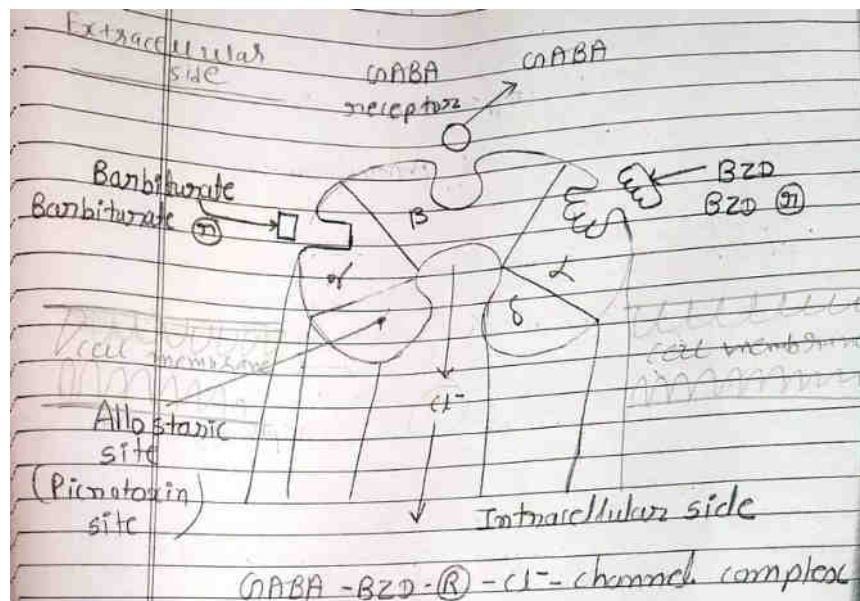 Extracellular
side
GABA
receptor
GABA
Barbiturate
Barbiturate ⓡ
BZD
BZD ⓡ
β
α
γ
δ
cell membrane
cell membrane
Cl⁻
Allostaric
site
(Picrotoxin
site)
Intracellular side
GABA-BZD-Ⓡ-Cl⁻-channel complex